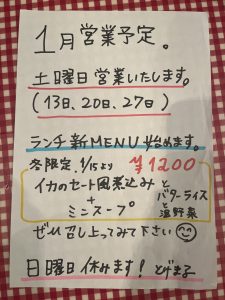 1月営業予定。
土曜日営業いたします。
(13日、20日、27日)
ランチ新MENU始めます。
冬限定.1/15より ¥1200
イカのセート風煮込みと
+ バターライス
ミニスープ と温野菜
ぜひ召し上ってみて下さい
日曜日休みます! とげまる